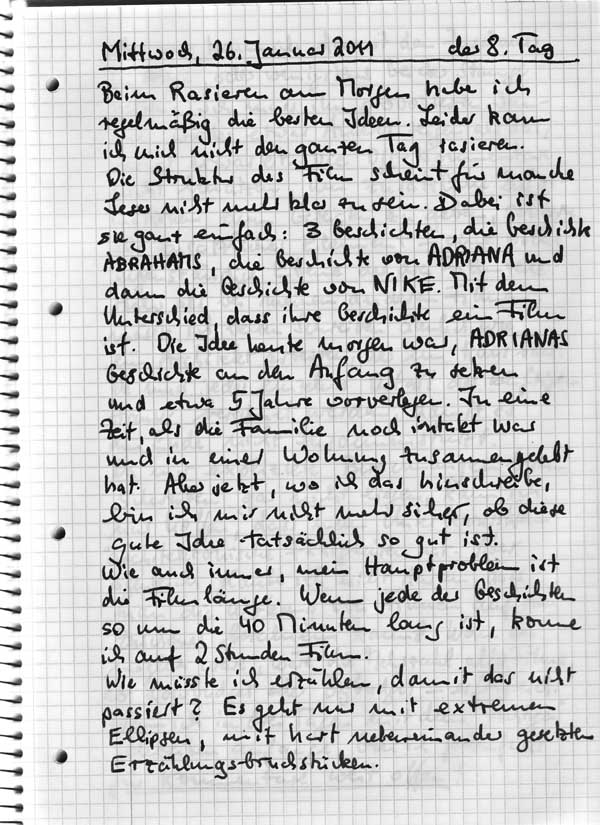 Mittwoch, 26. Januar 2011 der 8. Tag
Beim Rasieren am Morgen habe ich
regelmäßig die besten Ideen. Leider kann
ich mich nicht den ganzen Tag rasieren.
Die Struktur des Film scheint für manche
Leser nicht mehr klar zu sein. Dabei ist
sie ganz einfach: 3 Geschichten, die Geschichte
ABRAHAMS, die Geschichte von ADRIANA und
dann die Geschichte von NIKE. Mit dem
Unterschied, dass ihre Geschichte ein Film
ist. Die Idee heute morgen war, ADRIANAS
Geschichte an den Anfang zu setzen
und etwa 5 Jahre vorverlegen. In eine
Zeit, als die Familie noch intakt war
und in einer Wohnung zusammengelebt
hat. Aber jetzt, wo ich das hinschreibe,
bin ich mir nicht mehr sicher, ob diese
gute Idee tatsächlich so gut ist.
Wie auch immer, mein Hauptproblem ist
die Filmlänge. Wenn jede der Geschichten
so um die 40 Minuten lang ist, komme
ich auf 2 Stunden Film.
Wie müsste ich erzählen, damit das nicht
passiert? Es geht nur mit extremen
Ellipsen, mit hart nebeneinander gesetzten
Erzählungsbruchstücken.